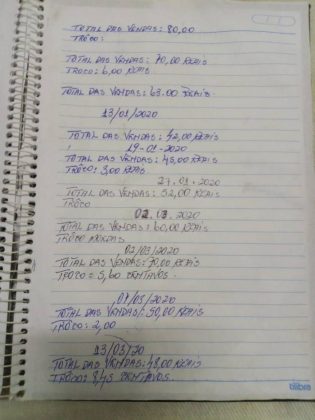 TOTAL DAS VENDAS: 80,00
TROCO:
TOTAL DAS VENDAS: 70,00 REAIS
TROCO: 6,00 REAIS.
TOTAL DAS VENDAS: 63.00 REAIS.
13/01/2020
TOTAL DAS VENDAS: 42,00 REAIS
19-01-2020
TOTAL DAS VENDAS: 45,00 REAIS
TROCO: 3,00 REAIS
27.01.2020
TOTAL DAS VENDAS: 52,00 REAIS
TROCO
02.03.2020
TOTAL DAS VENDAS: 60,00 REAIS
TROCO MOEDAS
02/03/2020
TOTAL DAS VENDAS: 70,00 REAIS
TROCO = 5,60 CENTAVOS.
TOTAL DAS VENDAS: 50,00 REAIS
TROCO: 2,00
13/03/20
TOTAL DAS VENDAS: 48,00 REAIS
TROCO: 8,45 CENTAVOS.